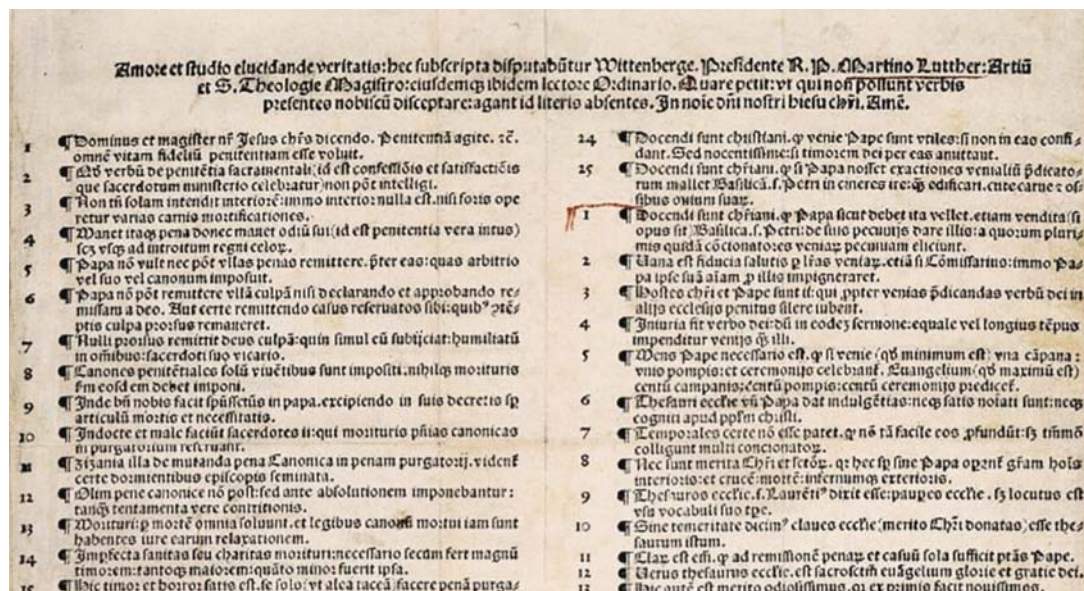 Amore et studio elucidande veritatis: hec subscripta disputabũtur Wittenberge. Presidente R. P. Martino Lutther: Artiũ
et S. Theologie Magistro: eiusdemqꝫ ibidem lectore Ordinario. Quare petit: vt qui non possunt verbis
presentes nobiscũ disceptare: agant id literis absentes. In noĩe dñi nostri hiesu chr̃i. Amẽ.
1 ¶ Dominus et magister nr̃ Jesus chr̃s dicendo. Penitentiã agite. ⁊c̃.
omnẽ vitam fideliũ penitentiam esse voluit.
2 ¶ Qḋ verbũ de penitẽtia sacramentali (id est confessiõis et satisfactiõis
que sacerdotum ministerio celebratur) non põt intelligi.
3 ¶ Non tñ solam intendit interiorẽ: immo interior nulla est. nisi foris ope
retur varias carnis mortificationes.
4 ¶ Manet itaqꝫ pena donec manet odiũ sui (id est penitentia vera intus)
scꝫ vsqꝫ ad introitum regni celoꝝ.
5 ¶ Papa nõ vult nec põt vllas penas remittere. p̃ter eas: quas arbitrio
vel suo vel canonum imposuit.
6 ¶ Papa nõ põt remittere vllã culpã nisi declarando et approbando re⸗
missam a deo. Aut certe remittendo casus reseruatos sibi: quibꝰ ꝯtẽ⸗
ptis culpa prorsus remaneret.
7 ¶ Nulli prorsus remittit deus culpã: quin simul eũ subijciat: humiliatũ
in oĩnibus: sacerdoti suo vicario.
8 ¶ Canones penitẽtiales solũ viuẽtibus sunt impositi. nihilqꝫ morituris
ẜm eosdem debet imponi.
9 ¶ Inde bñ nobis facit spũssctũs in papa. excipiendo in suis decretis sꝑ
articulũ mortis et necessitatis.
10 ¶ Indocte et male faciũt sacerdotes ii: qui morituris pñias canonicas
in purgatorium reseruant.
11 ¶ Zizania illa de mutanda pena Canonica in penam purgatorij. vident̃
certe dormientibus episcopis seminata.
12 ¶ Olim pene canonice nõ post: sed ante absolutionem imponebantur:
tanqꝫ tentamenta vere contritionis.
13 ¶ Morituri: ꝑ mortẽ omnia soluunt. et legibus canonũ mortui iam sunt
habentes iure earum relaxationem.
14 ¶ Imꝑfecta sanitas seu charitas morituri: necessario secum fert magnũ
timorem: tantoqꝫ maiorem: quãto minor fuerit ipsa.
15 ¶ Hic timor et horror satis est. se solo: vt alea taceã: facere penã purga⸗
24 ¶ Docendi sunt christiani. ꝙ venie Pape sunt vtiles: si non in eas confi⸗
dant. Sed nocentissime: si timorem dei per eas amittant.
25 ¶ Docendi sunt chr̃tiani. ꝙ si Papa nosset exactiones venialiũ p̃dicato⸗
rum mallet Basilicã. s. Petri in cineres ire: qꝫ edificari. cute carne ⁊ os⸗
sibus ouium suaꝝ.
1 ¶ Docendi sunt chr̃tiani. ꝙ Papa sicut debet ita vellet. etiam vendita (si
opus sit) Basilica. s. Petri: de suis pecunijs dare illis: a quorum pluri⸗
mis quidã cõcionatores veniaꝝ pecuniam eliciunt.
2 ¶ Vana est fiducia salutis ꝑ lr̃as veniaꝝ. etiã si Cõmissarius: immo Pa⸗
pa ipse suã aĩam ꝓ illis impigneraret.
3 ¶ Hostes chr̃i et Pape sunt ii: qui ꝓpter venias p̃dicandas verbũ dei in
alijs ecclesijs penitus silere iubent.
4 ¶ Iniuria fit verbo dei: dũ in eodeꝫ sermone: equale vel longius tẽpus
impenditur venijs qꝫ illi.
5 ¶ Mens Pape necessario est. ꝙ si venie (qḋ minimum est) vna cãpana:
vnis pompis: et ceremonijs celebrant̃. Euangelium (qḋ maximũ est)
centũ campanis: centũ pompis: centũ ceremonijs predicet̃.
6 ¶ Thesauri eccĺie vñ Papa dat indulgẽtias: neqꝫ satis noĩati sunt: neqꝫ
cogniti apud ppĺm christi.
7 ¶ Temporales certe nõ esse patet. ꝙ nõ tã facile eos ꝓfundũt: sꝫ tm̃mõ
colligunt multi concionatoꝝ.
8 ¶ Nec sunt merita Chr̃i et sctõꝝ. qꝛ hec sꝑ sine Papa oꝑant̃ gr̃am hoĩs
interioris: et crucẽ: mortẽ: infernumqꝫ exterioris.
9 ¶ Thesauros eccĺie. s. Laurẽtiꝰ dixit esse: pauꝑes eccĺie. sꝫ locutus est
vsu vocabuli suo tꝑe.
10 ¶ Sine temeritate dicimꝰ claues eccĺie (merito Chr̃i donatas) esse the⸗
saurum istum.
11 ¶ Claꝝ est eñ. ꝙ ad remissionẽ penaꝝ et casuũ sola sufficit ptãs Pape.
12 ¶ Verus thesaurus eccĺie. est sacrosctm̃ euãgelium glorie et gratie dei.
13 ¶ Hic autẽ est merito odiosissimus. qꝛ ex primis facit nouissimos.